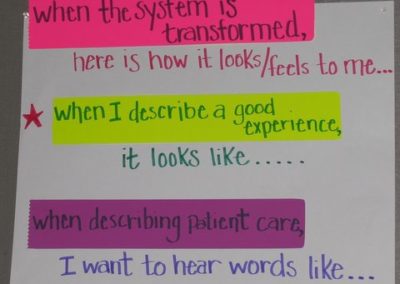 when the system is
transformed,
here is how it looks/feels to me...
when I describe a good
experience,
it looks like.....
when describing patient care,
I want to hear words like...